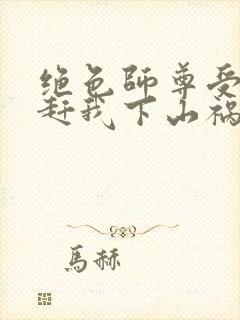 绝色師尊受
赶我下山禍
馬赫